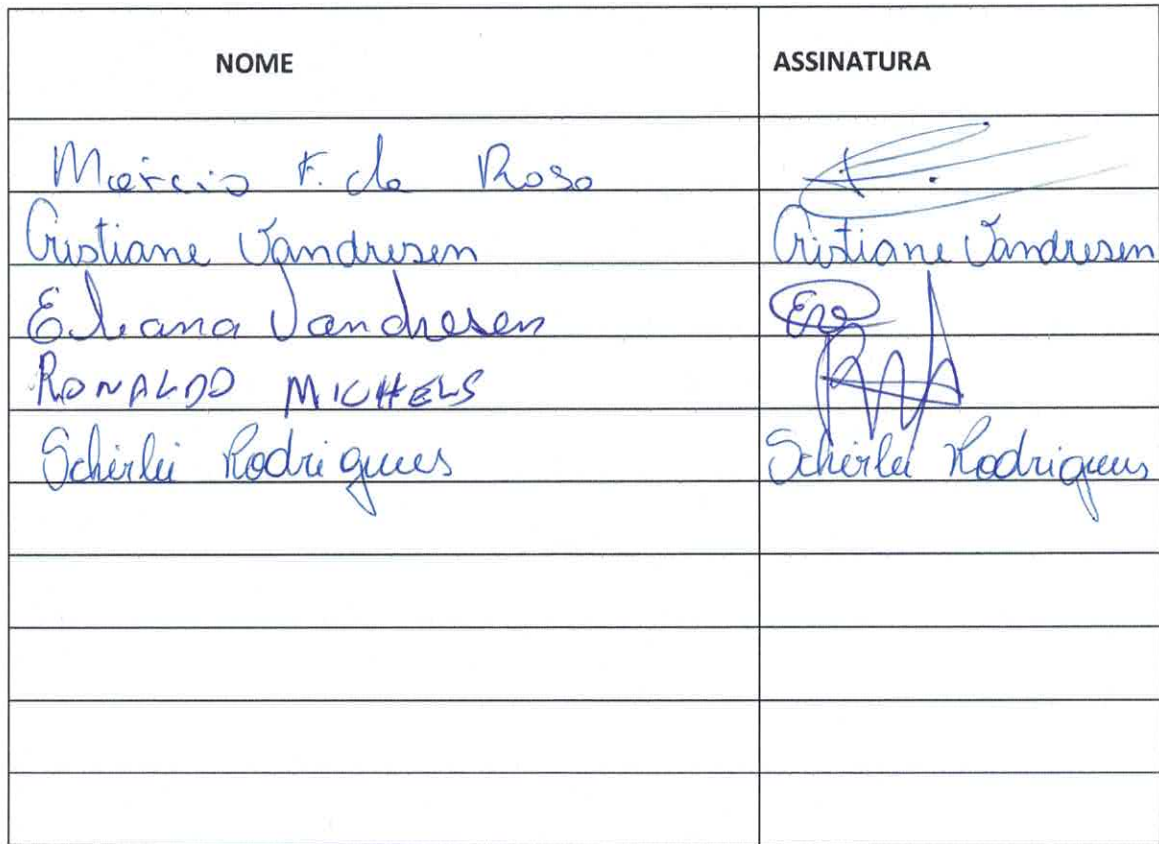 NOME ASSINATURA
Márcio F. da Rosa
Cristiane Vandresen Cristiane Vandresen
Eliana Vandresen
RONALDO MICHELS
Schirlei Rodrigues Schirlei Rodrigues